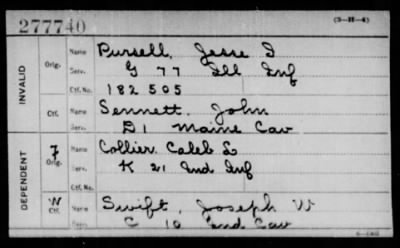 277740
(3-H-4)
INVALID
Orig.
Name Pursell, Jesse D
Serv. G 77 Ill Inf
Ctf. No. 182 505
Ctf.
Name Sennett, John
Serv. D 1 Maine Cav
DEPENDENT
Orig.
Name Collier, Caleb L
Serv. K 21 Ind Inf
Ctf. No.
W
Ctf.
Name Swift, Joseph W
Serv. C 10 Ind Cav